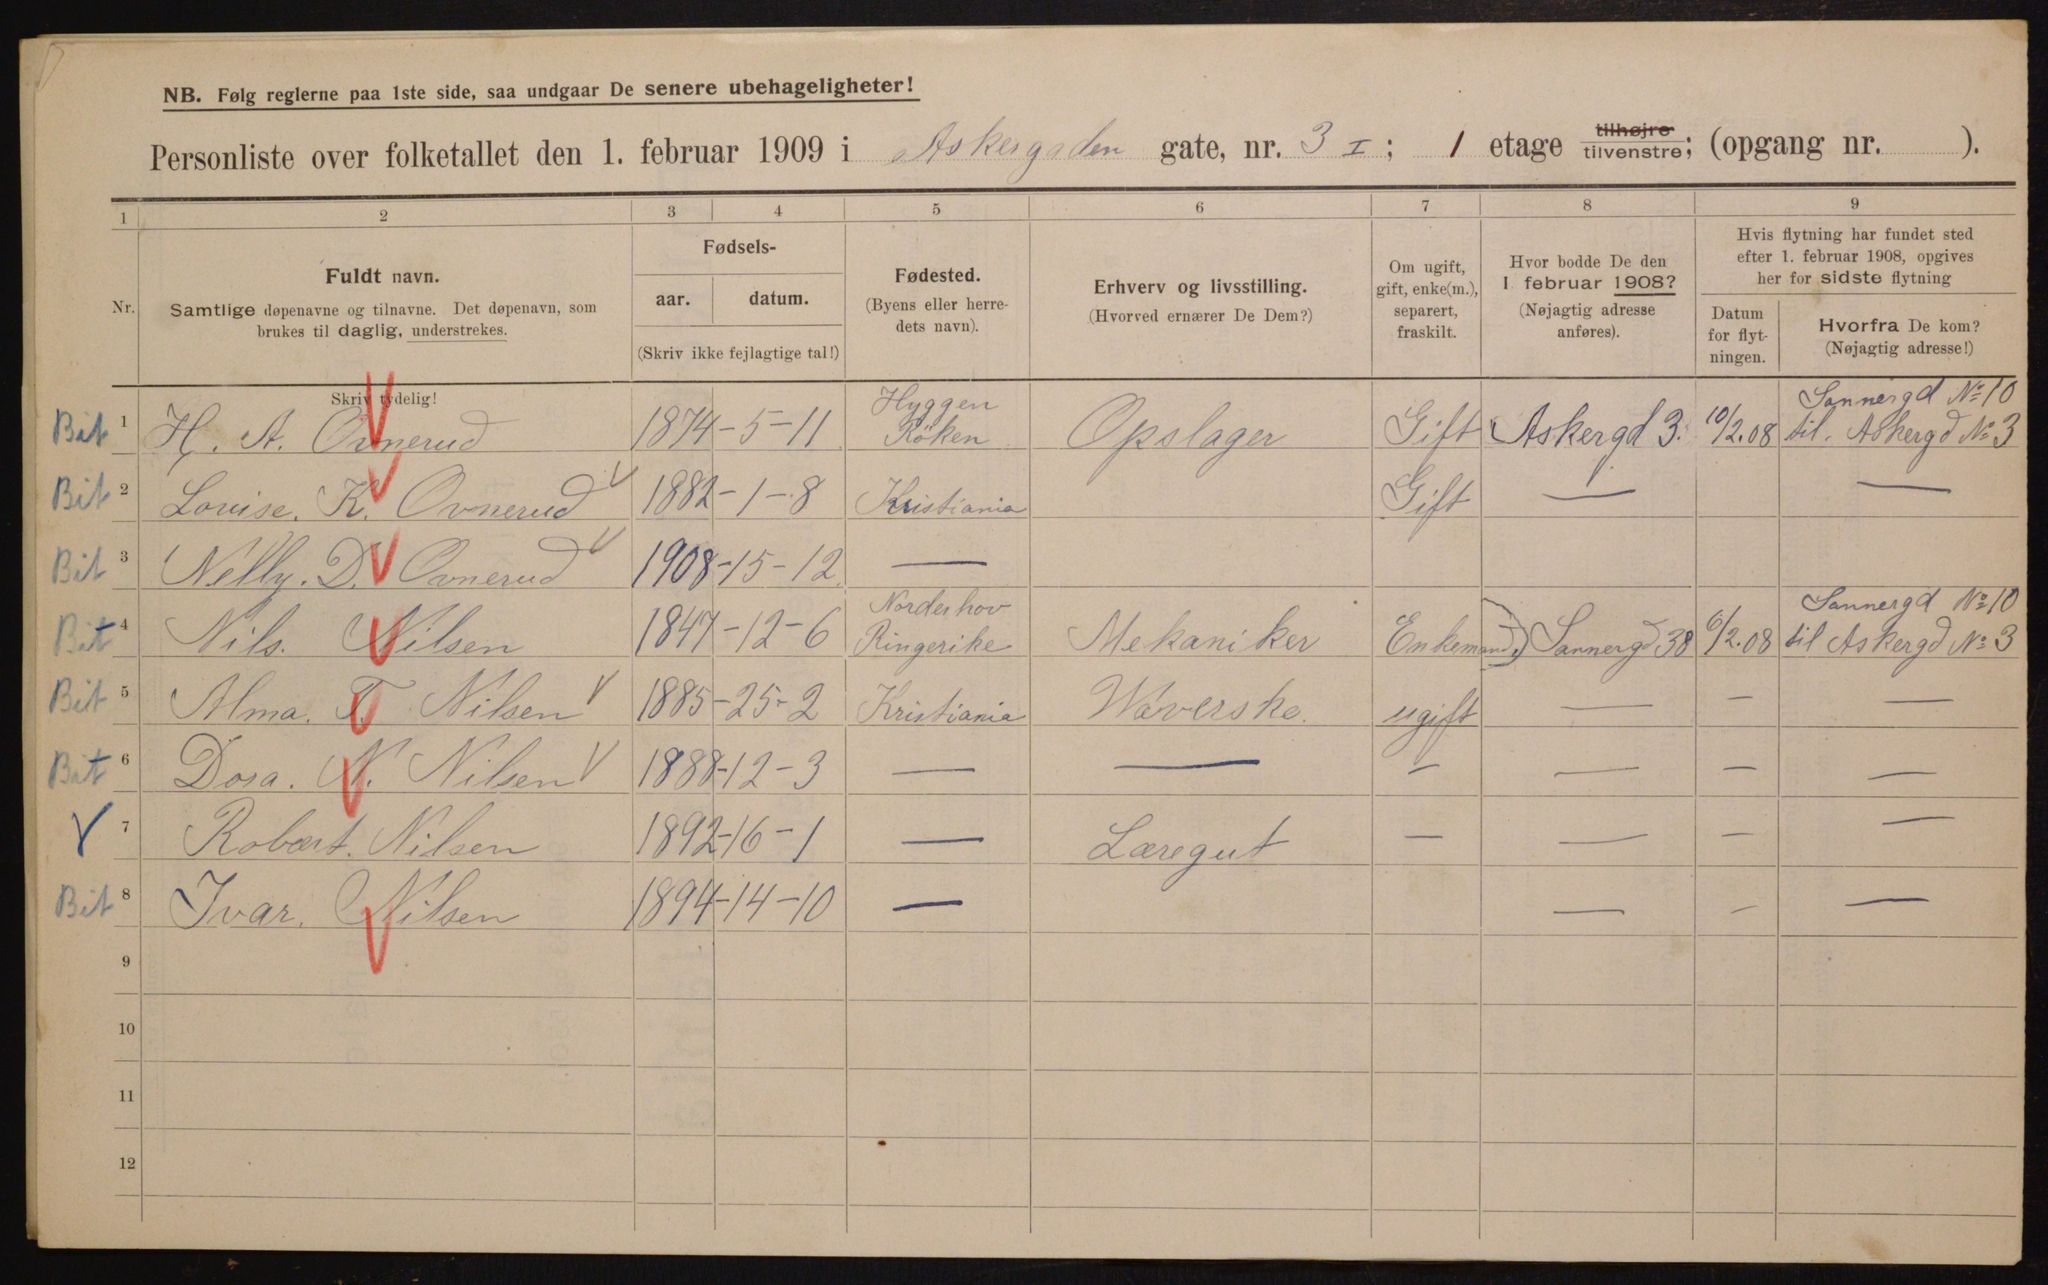 NB. Følg reglerne paa 1ste side, saa undgaar De senere ubehageligheter!
Personliste over folketallet den 1. februar 1909 i Askergaden gate, nr. 3 I; 1 etage tilhøjre tilvenstre; (opgang nr. ).
1 2 3 4 5 6 7 8 9
Nr.
Fuldt navn.
Samtlige døpenavne og tilnavne. Det døpenavn, som
brukes til daglig, understrekes.
Skriv tydelig!
Fødsels-
aar. datum.
(Skriv ikke fejlagtige tal!)
Fødested.
(Byens eller herre-
dets navn).
Erhverv og livsstilling.
(Hvorved ernærer De Dem?)
Om ugift,
gift, enke(m.),
separert,
fraskilt.
Hvor bodde De den
1 februar 1908?
(Nøjagtig adresse
anføres).
Hvis flytning har fundet sted
efter 1. februar 1908, opgives
her for sidste flytning
Datum
for flyt-
ningen.
Hvorfra De kom?
(Nøjagtig adresse!)
Bit 1 H. A. Ovnerud 1874 - 5 - 11 Hyggen Röken Opslager Gift Askergd 3. 10/2.08 Sannergd No 10 til. Askergd No 3
Bit 2 Lovise. K. Ovnerud V 1882 - 1 - 8 Kristiania Gift — —
Bit 3 Nelly. D. Ovnerud V 1908 - 15 - 12 —
Bit 4 Nils. Nilsen 1847 - 12 - 6 Norderhov Ringerike Mekaniker Enkemand. Sannergd 38 6/2.08 Sannergd No 10 til Askergd No 3
Bit 5 Alma. T. Nilsen V 1885 - 25 - 2 Kristiania Væverske. ugift — — —
Bit 6 Dora. N. Nilsen V 1888 - 12 - 3 — — — — — —
V 7 Robært. Nilsen 1892 - 16 - 1 — Læregut — — — —
Bit 8 Ivar. Nilsen 1894 - 14 - 10 — — — —
9
10
11
12